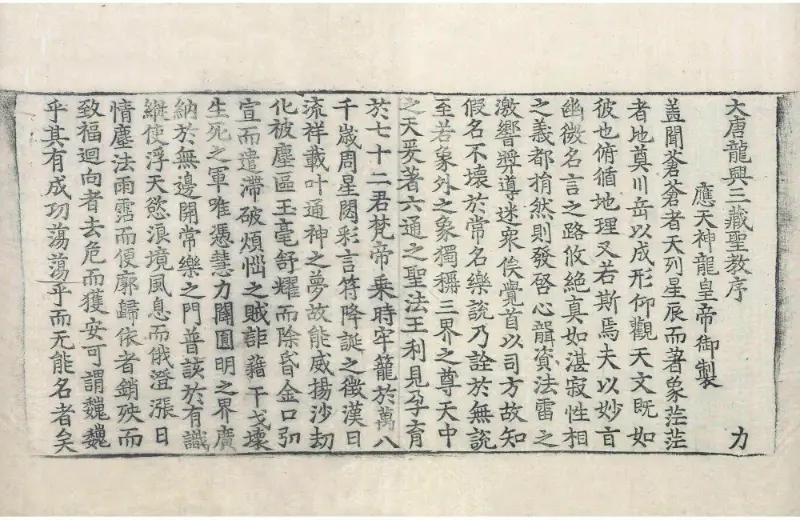 大唐龍興三藏聖教序 力
應天神龍皇帝御製
盖聞蒼蒼者天列星辰而著象茫茫
者地奠川岳以成形仰觀天文既如
彼也俯循地理又若斯焉夫以妙旨
幽微名言之路攸絶真如湛寂性相
之義都捐然則發啓心聾資法雷之
激響將導迷衆俟覺首以司方故知
假名不壞於常名樂說乃詮於無說
至若象外之象獨稱三界之尊天中
之天爰著六通之聖法王利見孕育
於七十二君梵帝乘時牢籠於萬八
千歲周星閟彩言符降誕之徵漢日
流祥載叶通神之夢故能威揚沙劫
化被塵區玉毫舒耀而除昏金口弘
宣而遣滯破煩惱之賊詎藉干戈壞
生死之軍唯憑慧力闢圓明之界廣
納於無邊開常樂之門普該於有識
縱使浮天慾浪境風息而俄澄漲日
情塵法雨霑而便廓歸依者銷殃而
致福迴向者去危而獲安可謂巍巍
乎其有成功蕩蕩乎而无能名者矣